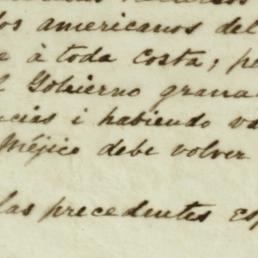 os americanos del
e à toda costa; pe
l Gobierno grana
ncias i habiendo va
Méjico debe volver
las precedentes Es